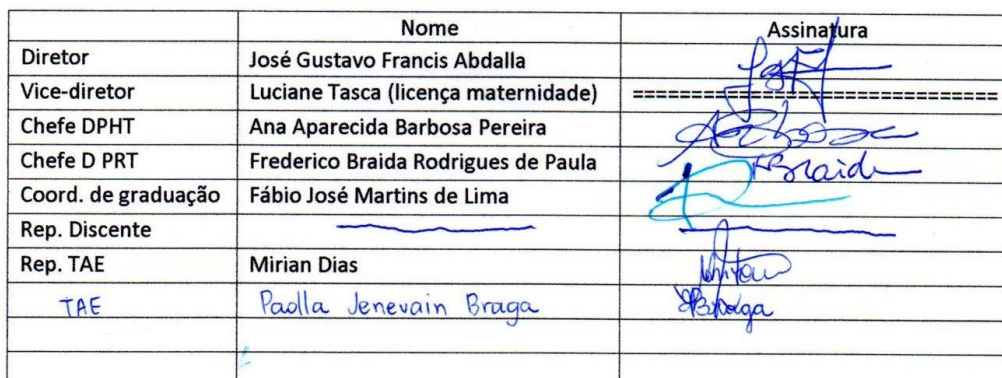 Nome Assinatura
Diretor José Gustavo Francis Abdalla
Vice-diretor Luciane Tasca (licença maternidade) ==============================
Chefe DPHT Ana Aparecida Barbosa Pereira
Chefe D PRT Frederico Braida Rodrigues de Paula Braida
Coord. de graduação Fábio José Martins de Lima
Rep. Discente
Rep. TAE Mirian Dias
TAE Paolla Jenevain Braga Braga